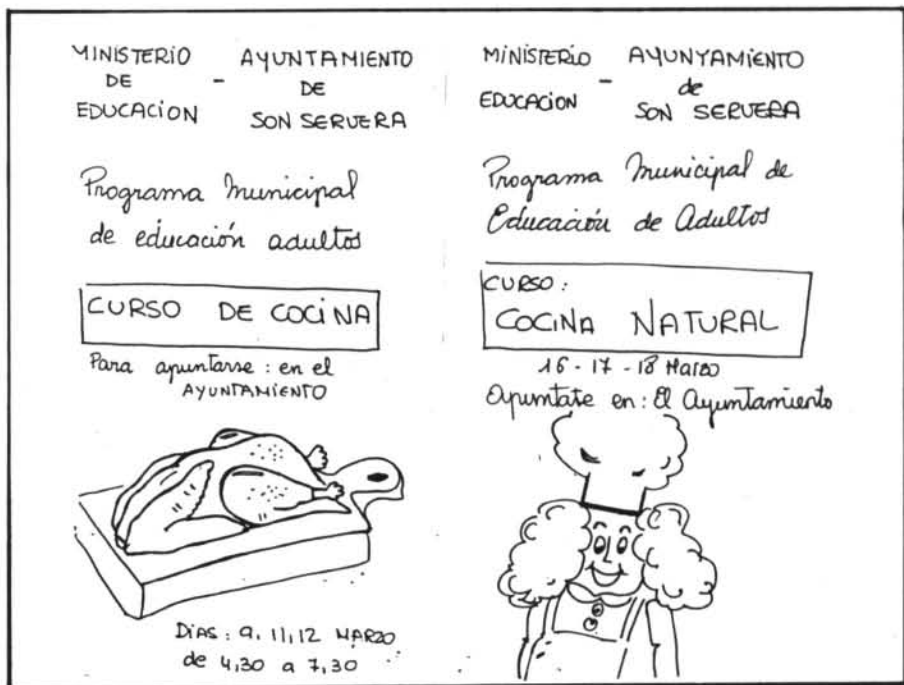 MINISTERIO
DE
EDUCACION
-
AYUNTAMIENTO
DE
SON SERVERA
Programa Municipal
de educación adultos
CURSO DE COCINA
Para apuntarse: en el
AYUNTAMIENTO
DIAS: 9, 11, 12 MARZO
de 4,30 a 7,30
MINISTERIO
EDUCACION
-
AYUNYAMIENTO
de
SON SERVERA
Programa Municipal de
Educación de Adultos
CURSO:
COCINA NATURAL
16 - 17 - 18 Marzo
Apuntate en: El Ayuntamiento